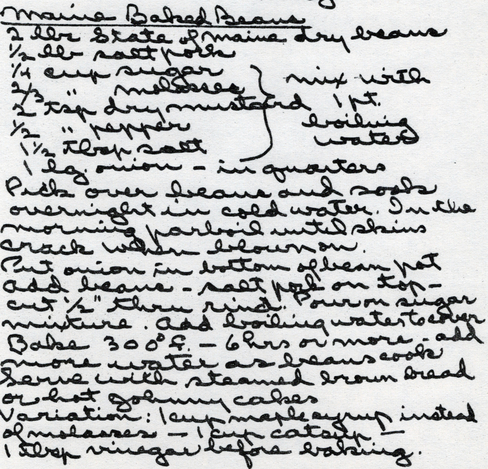 Maine Baked Beans
2 lbs State of Maine dry beans
1/2 lb salt pork
1/4 cup sugar
2/3 " molasses } mix with
2 tsp dry mustard 1 pt.
1/2 " pepper boiling
1 1/2 tbsp salt water
1 lg. onion - in quarters
Pick over beans and soak
overnight in cold water. In the
morning parboil until skins
crack when blown on.
Put onion in bottom of bean pot
add beans - salt pork on top -
cut 1/2" thru rind. Pour on sugar
mixture. Add boiling water to cover
Bake 300° f. - 6 hrs or more - add
more water as beans cook
Serve with steamed brown bread
or hot johnny cakes
Variation: 1 cup maple syrup instead
of molasses - 1 cup catsup -
1 tbsp vinegar before baking.